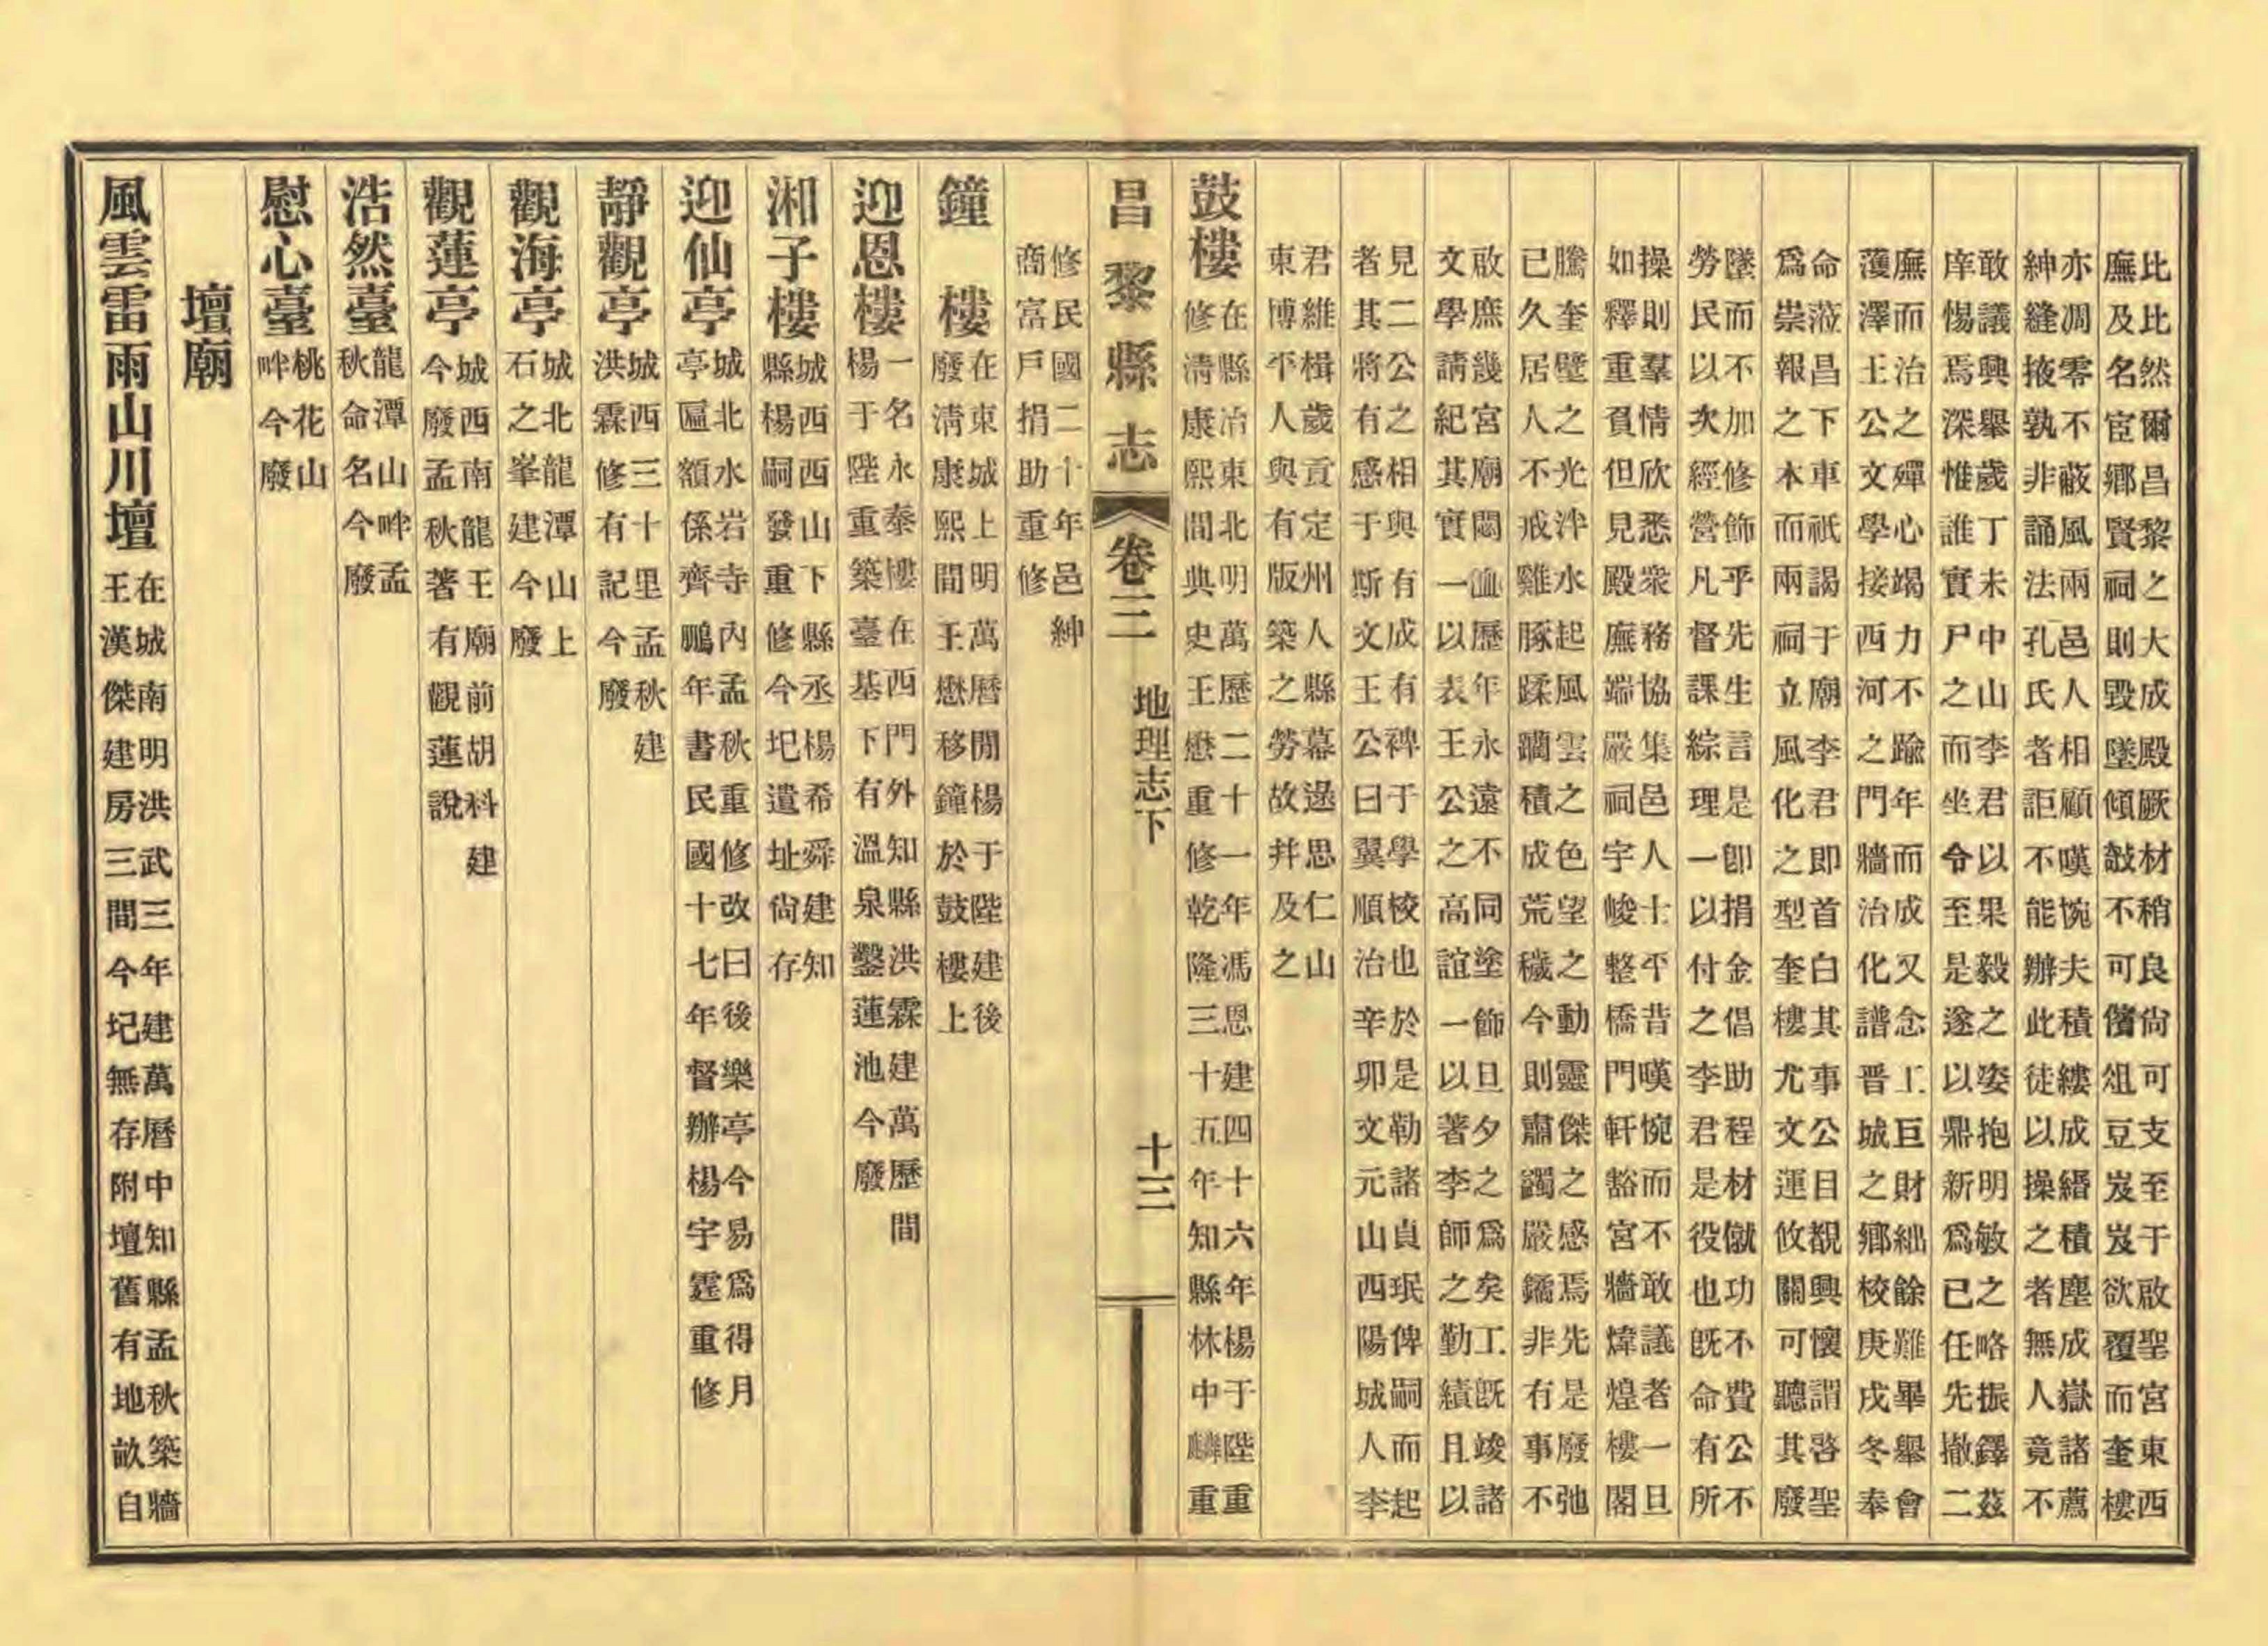 比比然爾昌黎之大成殿厥材稍良尙可支至于啟聖宮東西
廡及名宦鄕賢祠則毀墜傾敧不可儲俎豆岌岌欲覆而奎樓
亦凋零不蔽風兩邑人相顧嘆惋夫積縷成縉積塵成嶽諸薦
紳縫掖孰非誦法孔氏者詎不能辦此徒以操之者無人竟不
敢議興舉歲丁未中山李君以果毅之姿抱明敏之略振鐸茲
庠惕焉深惟誰實尸之而坐令至是遂以鼎新爲已任先撤二
廡而治之殫心竭力不踰年而成又念工巨財絀餘難畢舉會
濩澤王公文學接西河之門牆治化譜晋城之鄕校庚戌冬奉
命蒞昌下車祇謁于廟李君即首白其事公目覩興懷謂啓聖
爲崇報之本而兩祠立風化之型奎樓尤文運攸關可聽其廢
墜而不加修飾乎先生言是卽捐金倡助程材僦功不費公不
勞民以次經營凡督課綜理一以付之李君是役也旣命有所
操則羣情欣悉衆務協集邑人士平昔嘆惋而不敢議者一旦
如釋重負但見殿廡端嚴祠宇峻整橋門軒豁宮牆煒煌樓閣
騰奎壁之光泮水起風雲之色望之動靈傑之感焉先是廢弛
已久居人不戒雞豚蹂躪積成荒穢今則肅蠲嚴鐍非有事不
啟庶幾宮廟閟侐歷年永遠不同塗飾旦夕之爲矣工旣竣諸
文學請紀其實一以表王公之高誼一以著李師之勤績且以
見二公之相與有成有裨于學校也於是勒諸貞珉俾嗣而起
者其將有感于斯文王公曰翼順治辛卯文元山西陽城人李
君維楫歲貢定州人縣幕逯思仁山
東博平人與有版築之勞故幷及之
鼓樓 在縣治東北明萬歷二十一年馮恩建四十六年楊于陛重
修淸康熙間典史王懋重修乾隆三十五年知縣林中麟重
昌黎縣志 卷三 地理志下 十三
修民國二十年邑紳
商富戶捐助重修
鐘樓 在東城上明萬曆閒楊于陛建後
廢淸康熙間王懋移鐘於鼓樓上
迎恩樓 一名永泰樓在西門外知縣洪霖建萬歷間
楊于陛重築臺基下有溫泉鑿蓮池今廢
湘子樓 城西西山下縣丞楊希舜建知
縣楊嗣發重修今圮遺址尙存
迎仙亭 城北水岩寺內孟秋重修改曰後樂亭今易爲得月
亭匾額係齊鵬年書民國十七年督辦楊宇霆重修
靜觀亭 城西三十里孟秋建
洪霖修有記今廢
觀海亭 城北龍潭山上
石之峯建今廢
觀蓮亭 城西南龍王廟前胡科建
今廢孟秋著有觀蓮說
浩然臺 龍潭山畔孟
秋命名今廢
慰心臺 桃花山
畔今廢
壇廟
風雲雷雨山川壇 在城南明洪武三年建萬曆中知縣孟秋築牆
王漢傑建房三間今圮無存附壇舊有地畝自